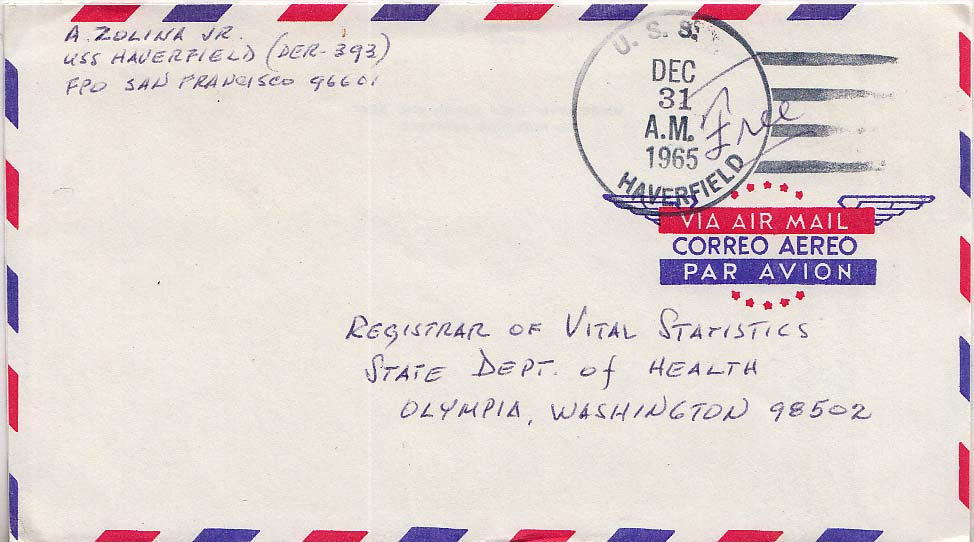 A. ZOLINA JR.
USS HAVERFIELD (DER-393)
FPO SAN FRANCISCO 96601
U. S. S.
DEC
31
A.M.
1965
HAVERFIELD
Free
VIA AIR MAIL
CORREO AEREO
PAR AVION
REGISTRAR OF VITAL STATISTICS
STATE DEPT. of HEALTH
OLYMPIA, WASHINGTON 98502